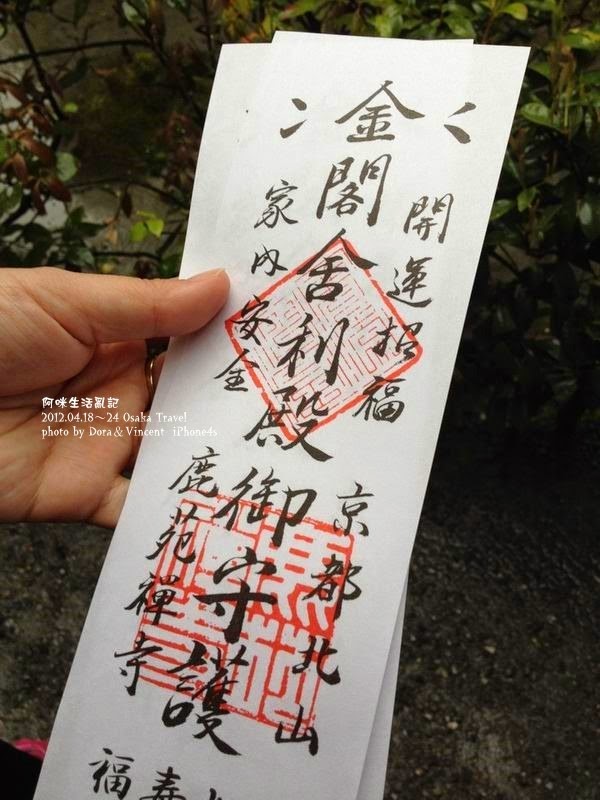 金閣舍利殿御守護
開運招福
家内安全
京都北山
鹿苑禅寺
福寿
阿咪生活亂記
2012.04.18～24 Osaka Travel
photo by Dora & Vincent iPhone4s